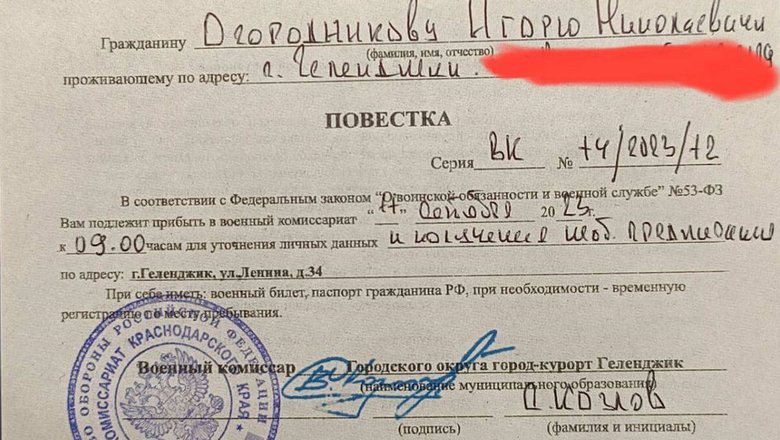 Гражданину Огородникову Игорю Николаевичу
(фамилия, имя, отчество)
проживающему по адресу: г. Геленджик.
ПОВЕСТКА
Серия ВК № 14/2023/12
В соответствии с Федеральным законом "О воинской обязанности и военной службе" №53-ФЗ
Вам подлежит прибыть в военный комиссариат "17" 2023г.
к 09.00 часам для уточнения личных данных и моб. предписания
по адресу: г.Геленджик, ул.Ленина, д.34
При себе иметь: военный билет, паспорт гражданина РФ, при необходимости - временную
регистрацию по месту пребывания.
Военный комиссар Городского округа город-курорт Геленджик
(наименование муниципального образования)
С. Козлов
(подпись) (фамилия и инициалы)
ОБОРОНЫ РОССИЙСКОЙ ФЕДЕРАЦИИ
КОМИССАРИАТ КРАСНОДАРСКОГО КРАЯ